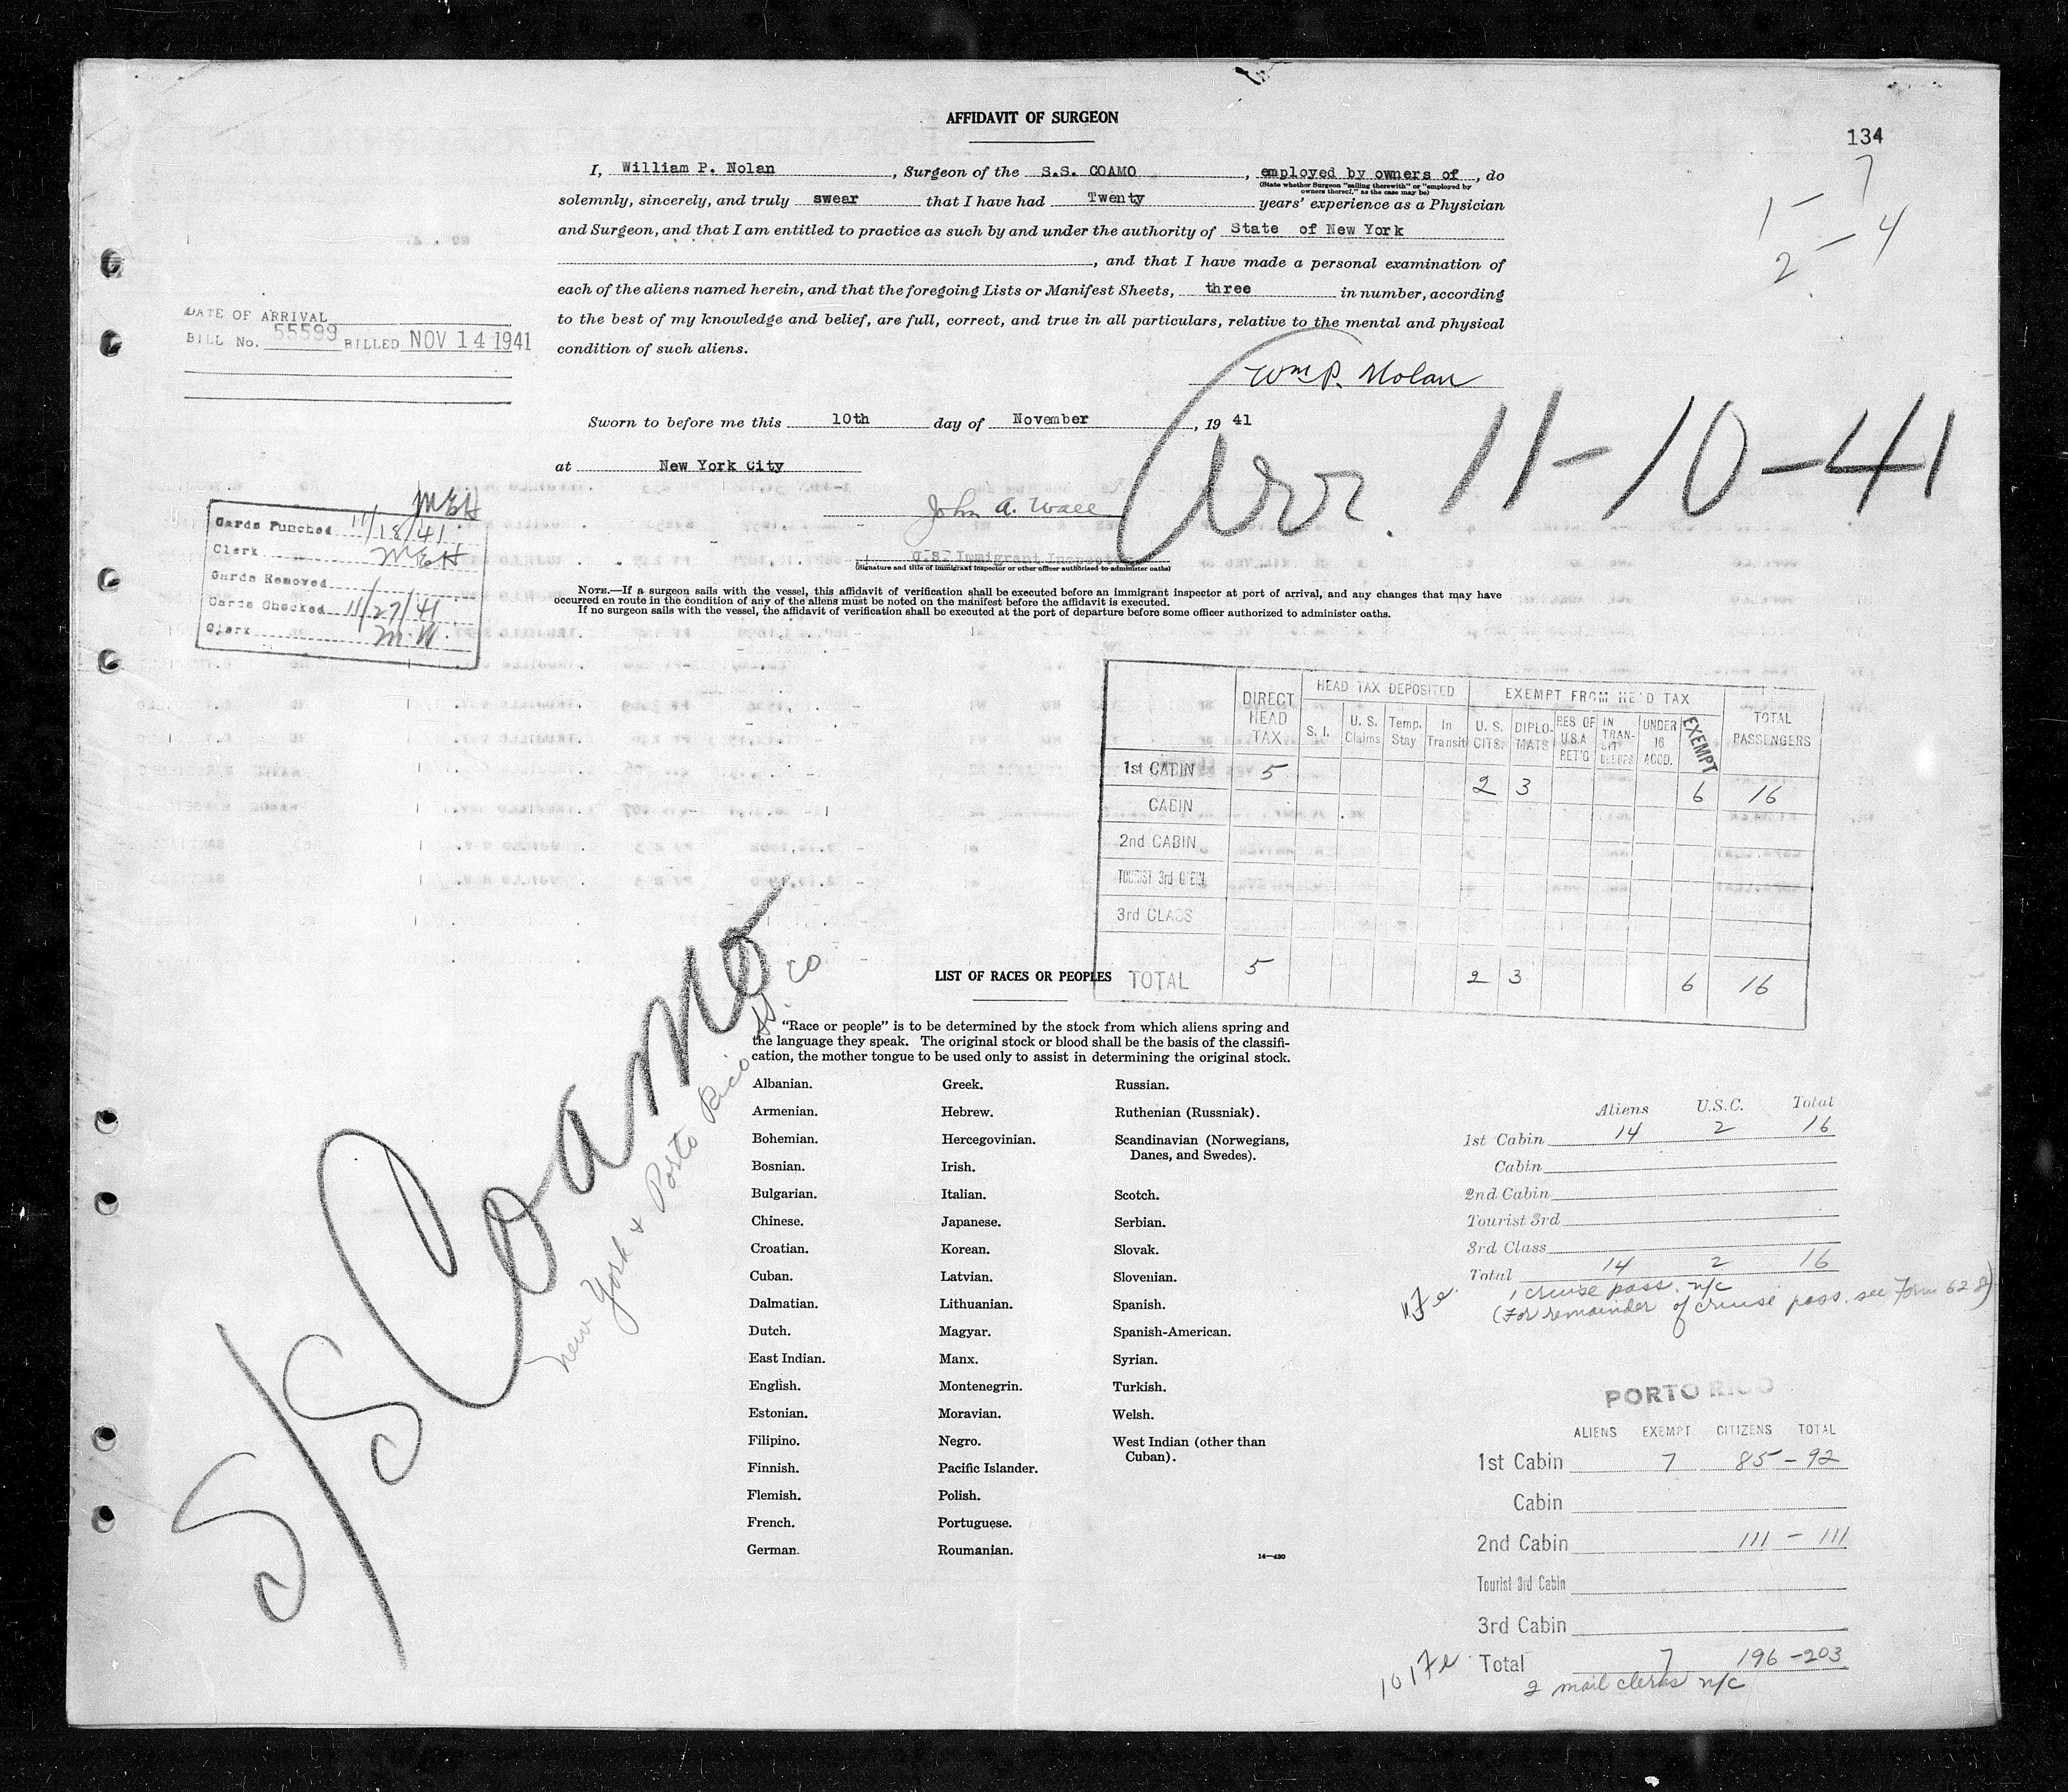 AFFIDAVIT OF SURGEON
134
7
1 —
2 — 4
I, William P. Nolan, Surgeon of the S.S. COAMO, employed by owners of, do
(State whether Surgeon "sailing therewith" or "employed by
owners thereof," as the case may be)
solemnly, sincerely, and truly swear that I have had Twenty years' experience as a Physician
and Surgeon, and that I am entitled to practice as such by and under the authority of State of New York
, and that I have made a personal examination of
each of the aliens named herein, and that the foregoing Lists or Manifest Sheets, three in number, according
to the best of my knowledge and belief, are full, correct, and true in all particulars, relative to the mental and physical
condition of such aliens.
DATE OF ARRIVAL
BILL No. 55599 BILLED NOV 14 1941
Wm P. Nolan
Sworn to before me this 10th day of November, 19 41
at New York City
Arr. 11-10-41
John A. Wall
U.S. Immigrant Inspector
(Signature and title of immigrant inspector or other officer authorized to administer oaths)
MEH
Cards Punched 11/18/41
Clerk MEH
Cards Removed
Cards Checked 11/27/41
Clerk M.W.
NOTE.—If a surgeon sails with the vessel, this affidavit of verification shall be executed before an immigrant inspector at port of arrival, and any changes that may have
occurred en route in the condition of any of the aliens must be noted on the manifest before the affidavit is executed.
If no surgeon sails with the vessel, the affidavit of verification shall be executed at the port of departure before some officer authorized to administer oaths.
DIRECT HEAD TAX HEAD TAX DEPOSITED EXEMPT FROM HEAD TAX TOTAL PASSENGERS
S. I. U. S. Claims Temp. Stay In Transit U. S. CITS. DIPLOMATS RES OF U.S.A RET'G IN TRANSIT UNDER 16 ACCD. EXEMPT
1st CABIN 5 2 3 6 16
CABIN
2nd CABIN
TOURIST 3rd CABIN
3rd CLASS
TOTAL 5 2 3 6 16
S/S Coamo
New York & Porto Rico SS. Co
LIST OF RACES OR PEOPLES
"Race or people" is to be determined by the stock from which aliens spring and
the language they speak. The original stock or blood shall be the basis of the classifi-
cation, the mother tongue to be used only to assist in determining the original stock.
Albanian.
Armenian.
Bohemian.
Bosnian.
Bulgarian.
Chinese.
Croatian.
Cuban.
Dalmatian.
Dutch.
East Indian.
English.
Estonian.
Filipino.
Finnish.
Flemish.
French.
German.
Greek.
Hebrew.
Hercegovinian.
Irish.
Italian.
Japanese.
Korean.
Latvian.
Lithuanian.
Magyar.
Manx.
Montenegrin.
Moravian.
Negro.
Pacific Islander.
Polish.
Portuguese.
Roumanian.
Russian.
Ruthenian (Russniak).
Scandinavian (Norwegians,
Danes, and Swedes).
Scotch.
Serbian.
Slovak.
Slovenian.
Spanish.
Spanish-American.
Syrian.
Turkish.
Welsh.
West Indian (other than
Cuban).
14—430
Aliens U.S.C. Total
1st Cabin 14 2 16
Cabin
2nd Cabin
Tourist 3rd
3rd Class
Total 14 2 16
1 cruise pass. n/c
(For remainder of cruise pass. see Form 628)
PORTO RICO
ALIENS EXEMPT CITIZENS TOTAL
1st Cabin 7 85 - 92
Cabin
2nd Cabin 111 - 111
Tourist 3rd Cabin
3rd Cabin
Total 7 196 - 203
2 mail clerks n/c